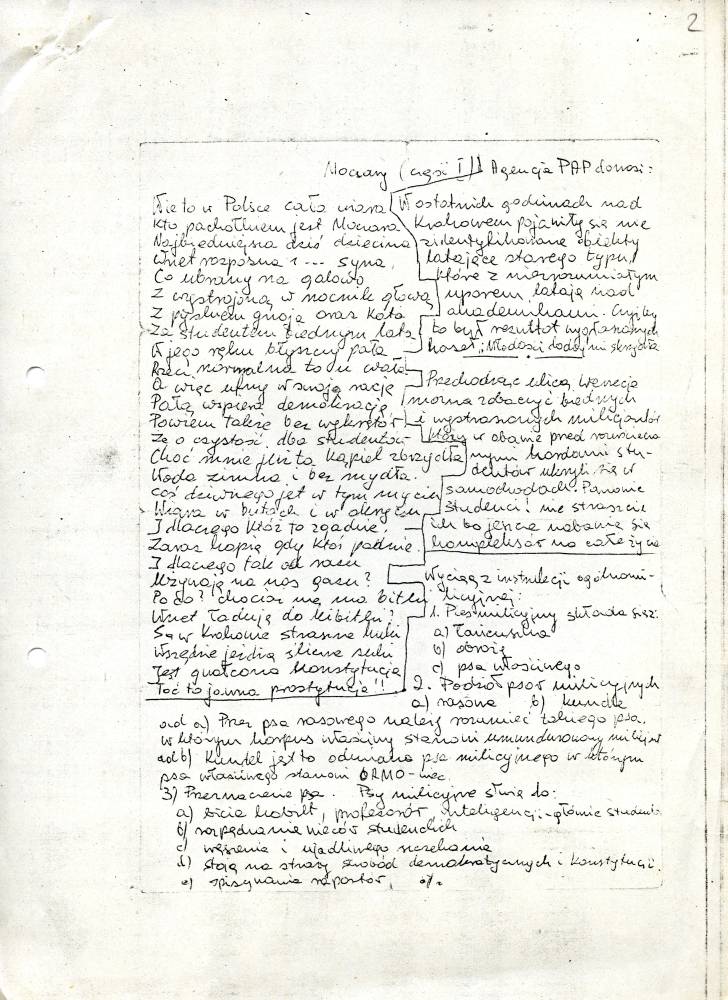 2
Moczary (część I)
Nie to w Polsce cała wiara
Kto pachołkiem jest Moczara
Najbiedniejsza dziś dziecina
Wnet rozpozna s... syna.
Co ubrany na galowo
Z wystrojoną w nocnik głową
Z pyskiem gnoja oraz kata
Za studentem biednym lata
W jego ręku błyszczy pała
Rzecz normalna to nie
A więc ufny w swoją rację
Pałą wspiera demokrację
Powiem także bez wykrętów
Że o czystość dba studentów
Choć mnie już ta kąpiel zbrzydła
Woda zimna i bez mydła.
coś dziwnego jest w tym myciu
Wiara w butach i w okryciu
I dlaczego któż to zgadnie?
Zaraz kopią gdy ktoś padnie.
I dlaczego tak od razu
Wżynają na nos gazu?
Po co? chociaż nie ma bitki
Wnet ładują do kibitki?
Są w Krakowie straszne suki
Wszędzie jeżdżą śliczne suki
Jest gwałcona konstytucja
Toć to jawna prostytucja!!
Agencja PAP donosi:
W ostatnich godzinach nad
Krakowem pojawiły się nie
zidentyfikowane obiekty
latające starego typu,
które z niezrozumiałym
uporem latają nad
akademikami. Czyżby
to był rezultat wygłaszanych
haseł: "Młodości dodaj mi skrzydła
Przechodząc ulicą Wenecja
można zobaczyć biednych
i wystraszonych milicjantów
którzy w obawie przed
nymi hordami stu-
dentów ukryli się w
samochodach. Panowie
studenci! nie straszcie
ich bo jeszcze nabawią się
kompleksów na całe życie
Wyciąg z instrukcji ogólnomi-
licyjnej:
1. Pies milicyjny składa się z:
a) łańcuszka
b) obroży
c) psa właściwego
2. Podział psów milicyjnych
a) rasowe b) kundle
ad a) Przez psa rasowego należy rozumieć takiego psa.
w którym korpus właściwy stanowi umundurowany milicjant
ad b) Kundel jest to odmiana psa milicyjnego w którym
psa właściwego stanowi ORMO-wiec.
3) Przeznaczenie psa. Psy milicyjne służą do:
a) bicia kobiet, profesorów inteligencji - głównie studentów
b) rozpędzania wieców studenckich
c) węszenia i ujadliwego szczekania
d) stoją na straży swobód demokratycznych i konstytucji.
e) spisywania raportów,